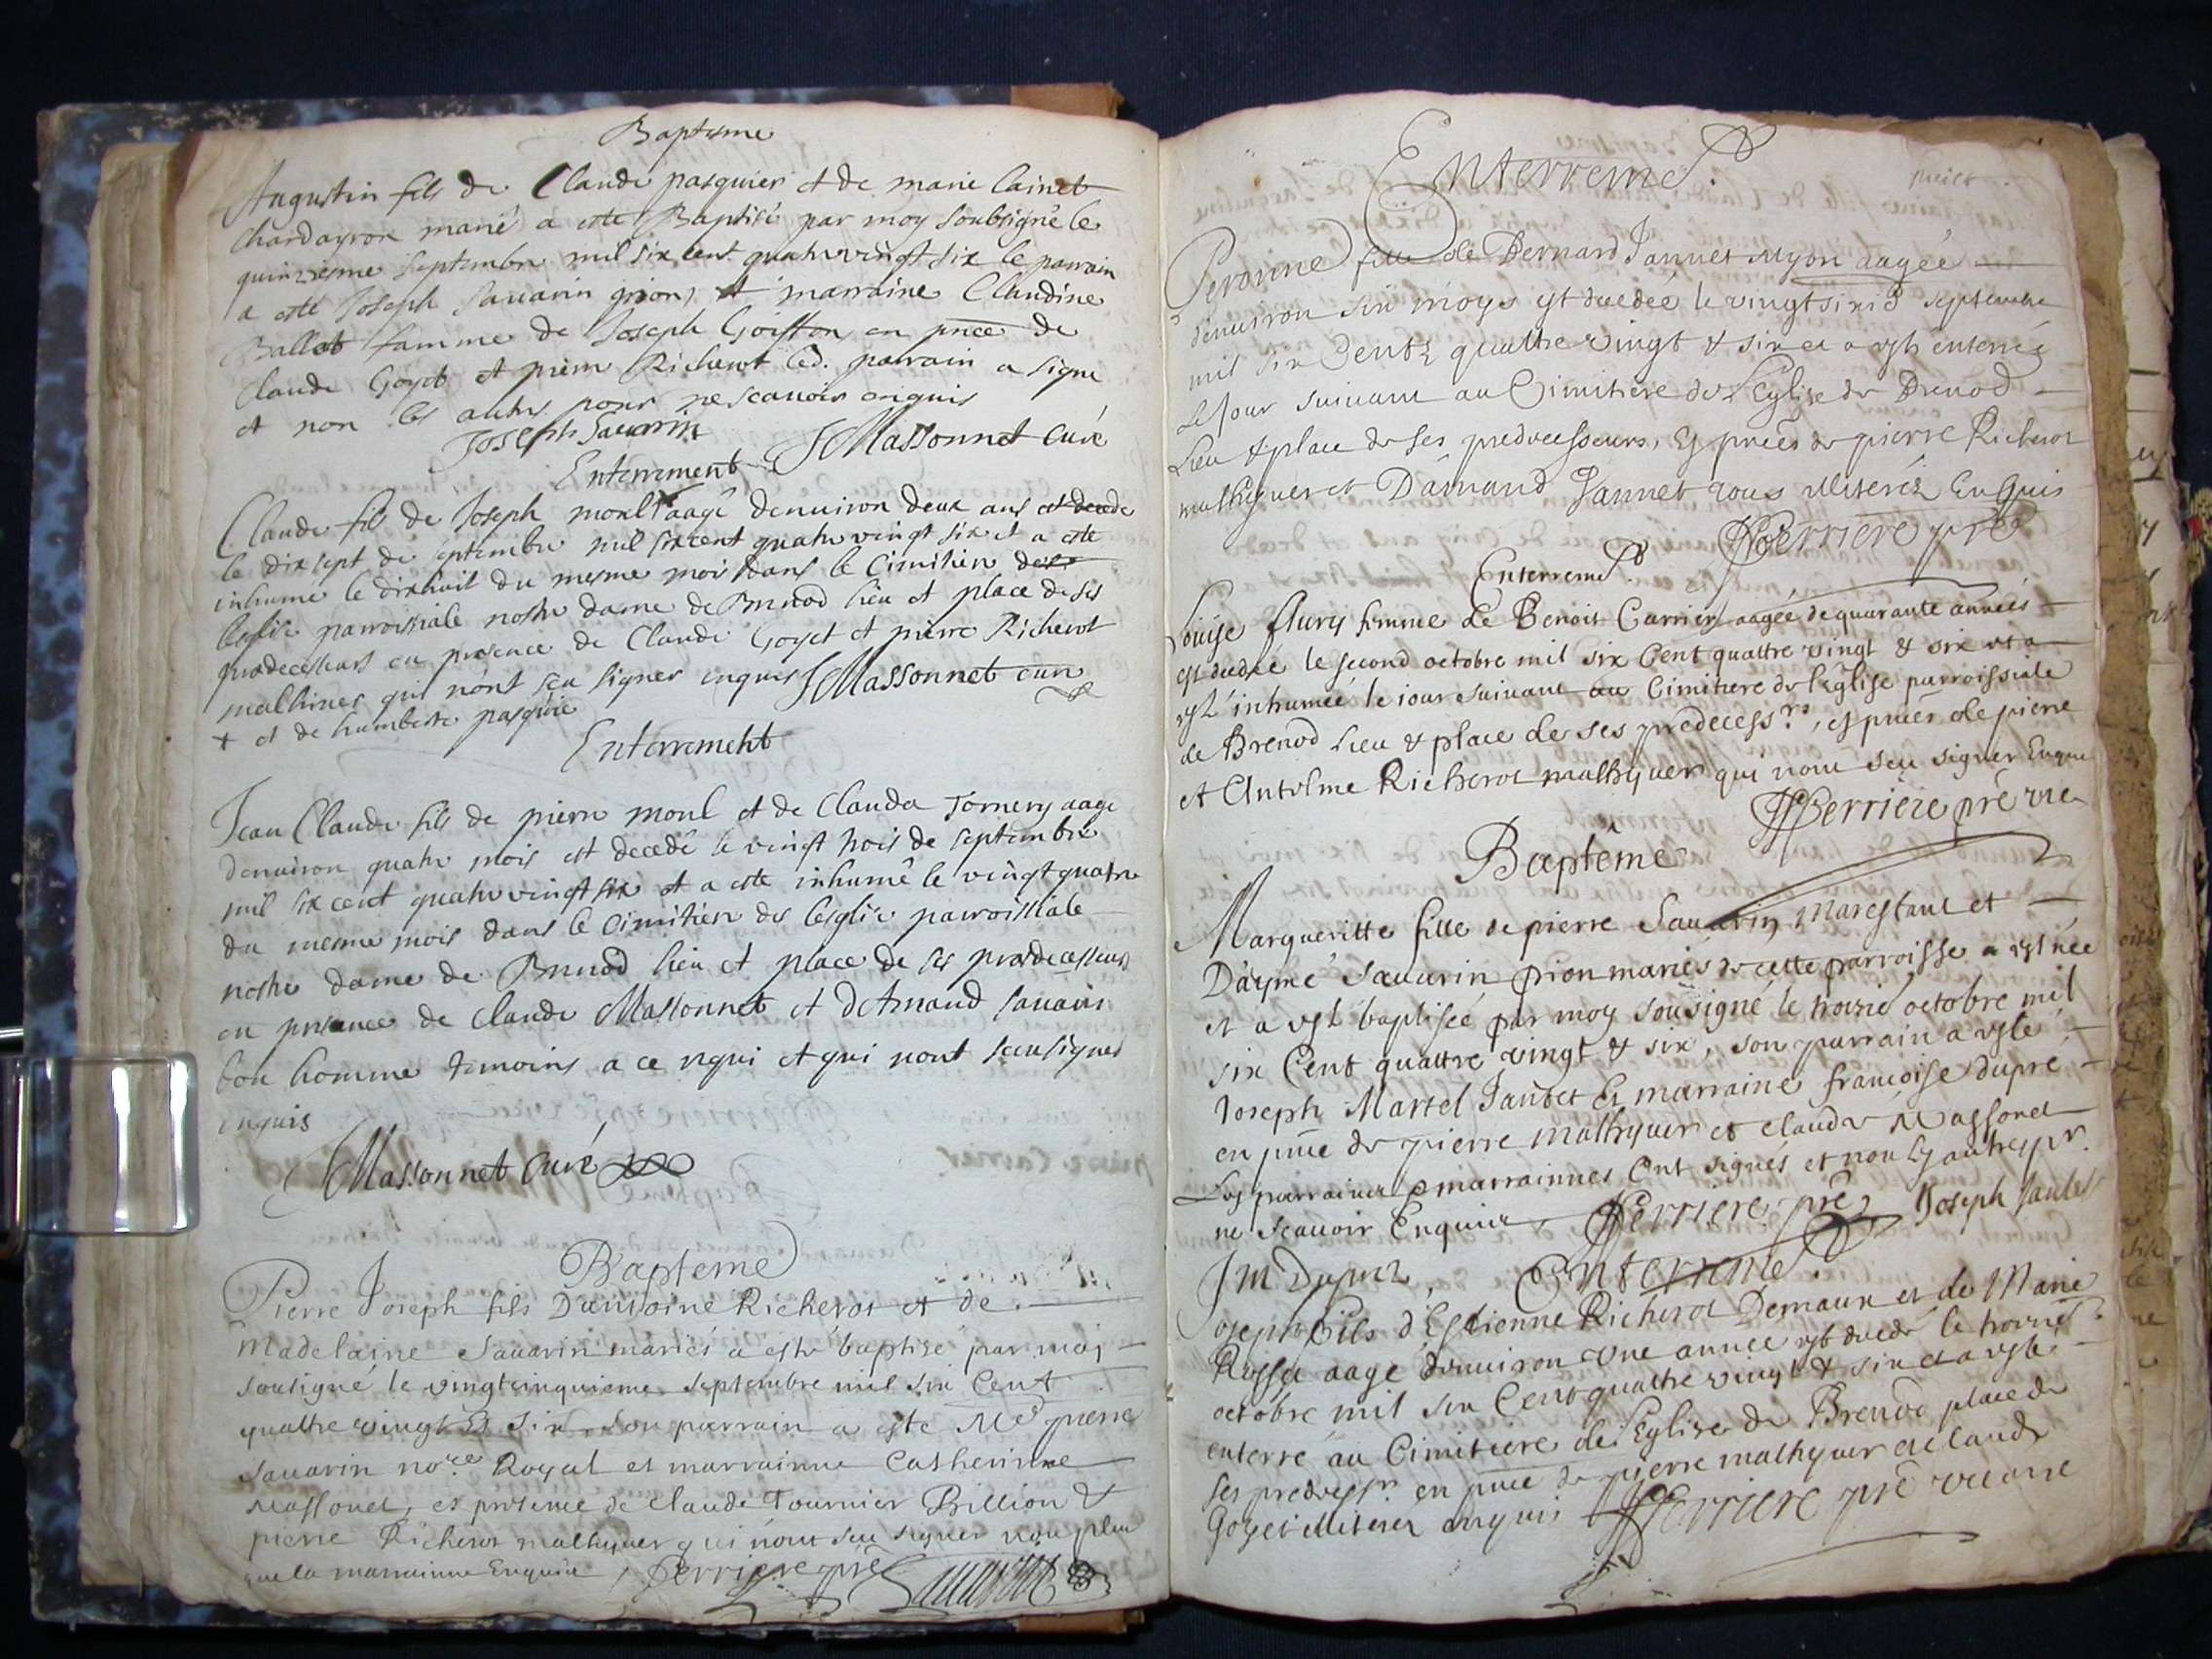 Baptesme
Augustin fils de Claude pasquier et de marie Cainet
Chardayron marié a este Baptisé par moy soubsigné le
quinziesme septembre mil six cent quatre vingt six le parrain
a esté Joseph Savarin grion, et marraine Claudine
Ballet famme de Joseph Goiffon en pnce de
Claude Goyet et pierre Richerot led. parrain a signe
et non les autres pour ne scavoir enquis
Joseph Savarin
Massonnet Curé
Enterrement
Claude fils de Joseph moul + aagé denviron deux ans est decede
le dix sept de septembre mil six cent quatre vingt six et a este
inhumé le dixhuit du mesme mois dans le Cimitiere de
leglise parroissiale nostre dame de Brenod lieu et place de ses
predecesseurs en presence de Claude Goyet et pierre Richerot
malhiner qui n'ont sceu signer enquis Massonnet cure
+ et de humberte pasquie
Enterrement
Jean Claude fils de pierre moul et de Clauda Tornery aage
denviron quatre mois est decedé le vingt trois de septembre
mil six cent quatre vingt six et a este inhumé le vingt quatre
du mesme mois dans le Cimitiere de leglise parroissiale
nostre dame de Brenod lieu et place de ses predecesseurs
en presence de Claude Massonnet et dArnaud Savarin
bon homme temoins a ce requi et qui nont sceu signer
enquis
Massonnet Curé
Bapteme
Pierre Joseph fils D'antoine Richerot et de
Madelaine Savarin mariés a este baptisé par moi
sousigné le vingtcinquieme septembre mil six Cent
quattre vingt et six, son parrain a este Me pierre
Savarin nore Royal et marrainne Catherinne
Massonet, es presence de Claude Tournier Brillion &
pierre Richerot malhyuer qui nont seu signer non plus
que la marrainne Enquise, Perriere pre Savarin
Enterremet.
Peronne fille de Bernard Jannet Myon aagée
d'enuiron six moys est decedée le vingtsixie septembre
mil six Cents quattre vingt & six et a esté enterrée
le Jour suivant au Cimitiere de L'Eglise de Brenod
Lieu & place de ses predecesseurs, Es pnces de pierre Richerot
malhyuer et Darnand Jannet tous illiterés Enquis
Perriere pre
Enterremet.
Louise fleury femme de Benoit Carrier aagée de quarante années
est decedée le second octobre mil six Cent quattre vingt & six et a
esté inhumée le jour suivant au Cimitiere de l'Eglise parroissiale
de Brenod Lieu & place de ses predecessrs, es pnces de pierre
et Antelme Richerot malhyuer qui nont seu signer Enquis
Perriere pre vic
Baptême
Margueritte fille de pierre Savarin, Marestant et
D'aymé Savarin grion mariés de cette parroisse a esté née
et a esté baptisée par moy sousigné le troisie octobre mil
six Cent quattre vingt & six, son parrain a esté
Joseph Martel Jantet Et marraine francoise dupré
en pnce de pierre malhyuer et claude Massonet
Les parrains & marrainnes ont signés et non les autres pr.
ne scavoir Enquis Perriere pre Joseph Jantet
f m Duprez
Enterremet.
Joseph fils d'Estienne Richerot Demaux et de Marie
Rosset aagé denuiron une année est decedé le troisie
octobre mil six Cent quattre vingt & six et a esté
enterré au Cimitiere de l'Eglise de Brenod place de
ses predecessrs en pnce de pierre malhyuer et claude
Goyet illiterez enquis Perriere pre vicaire